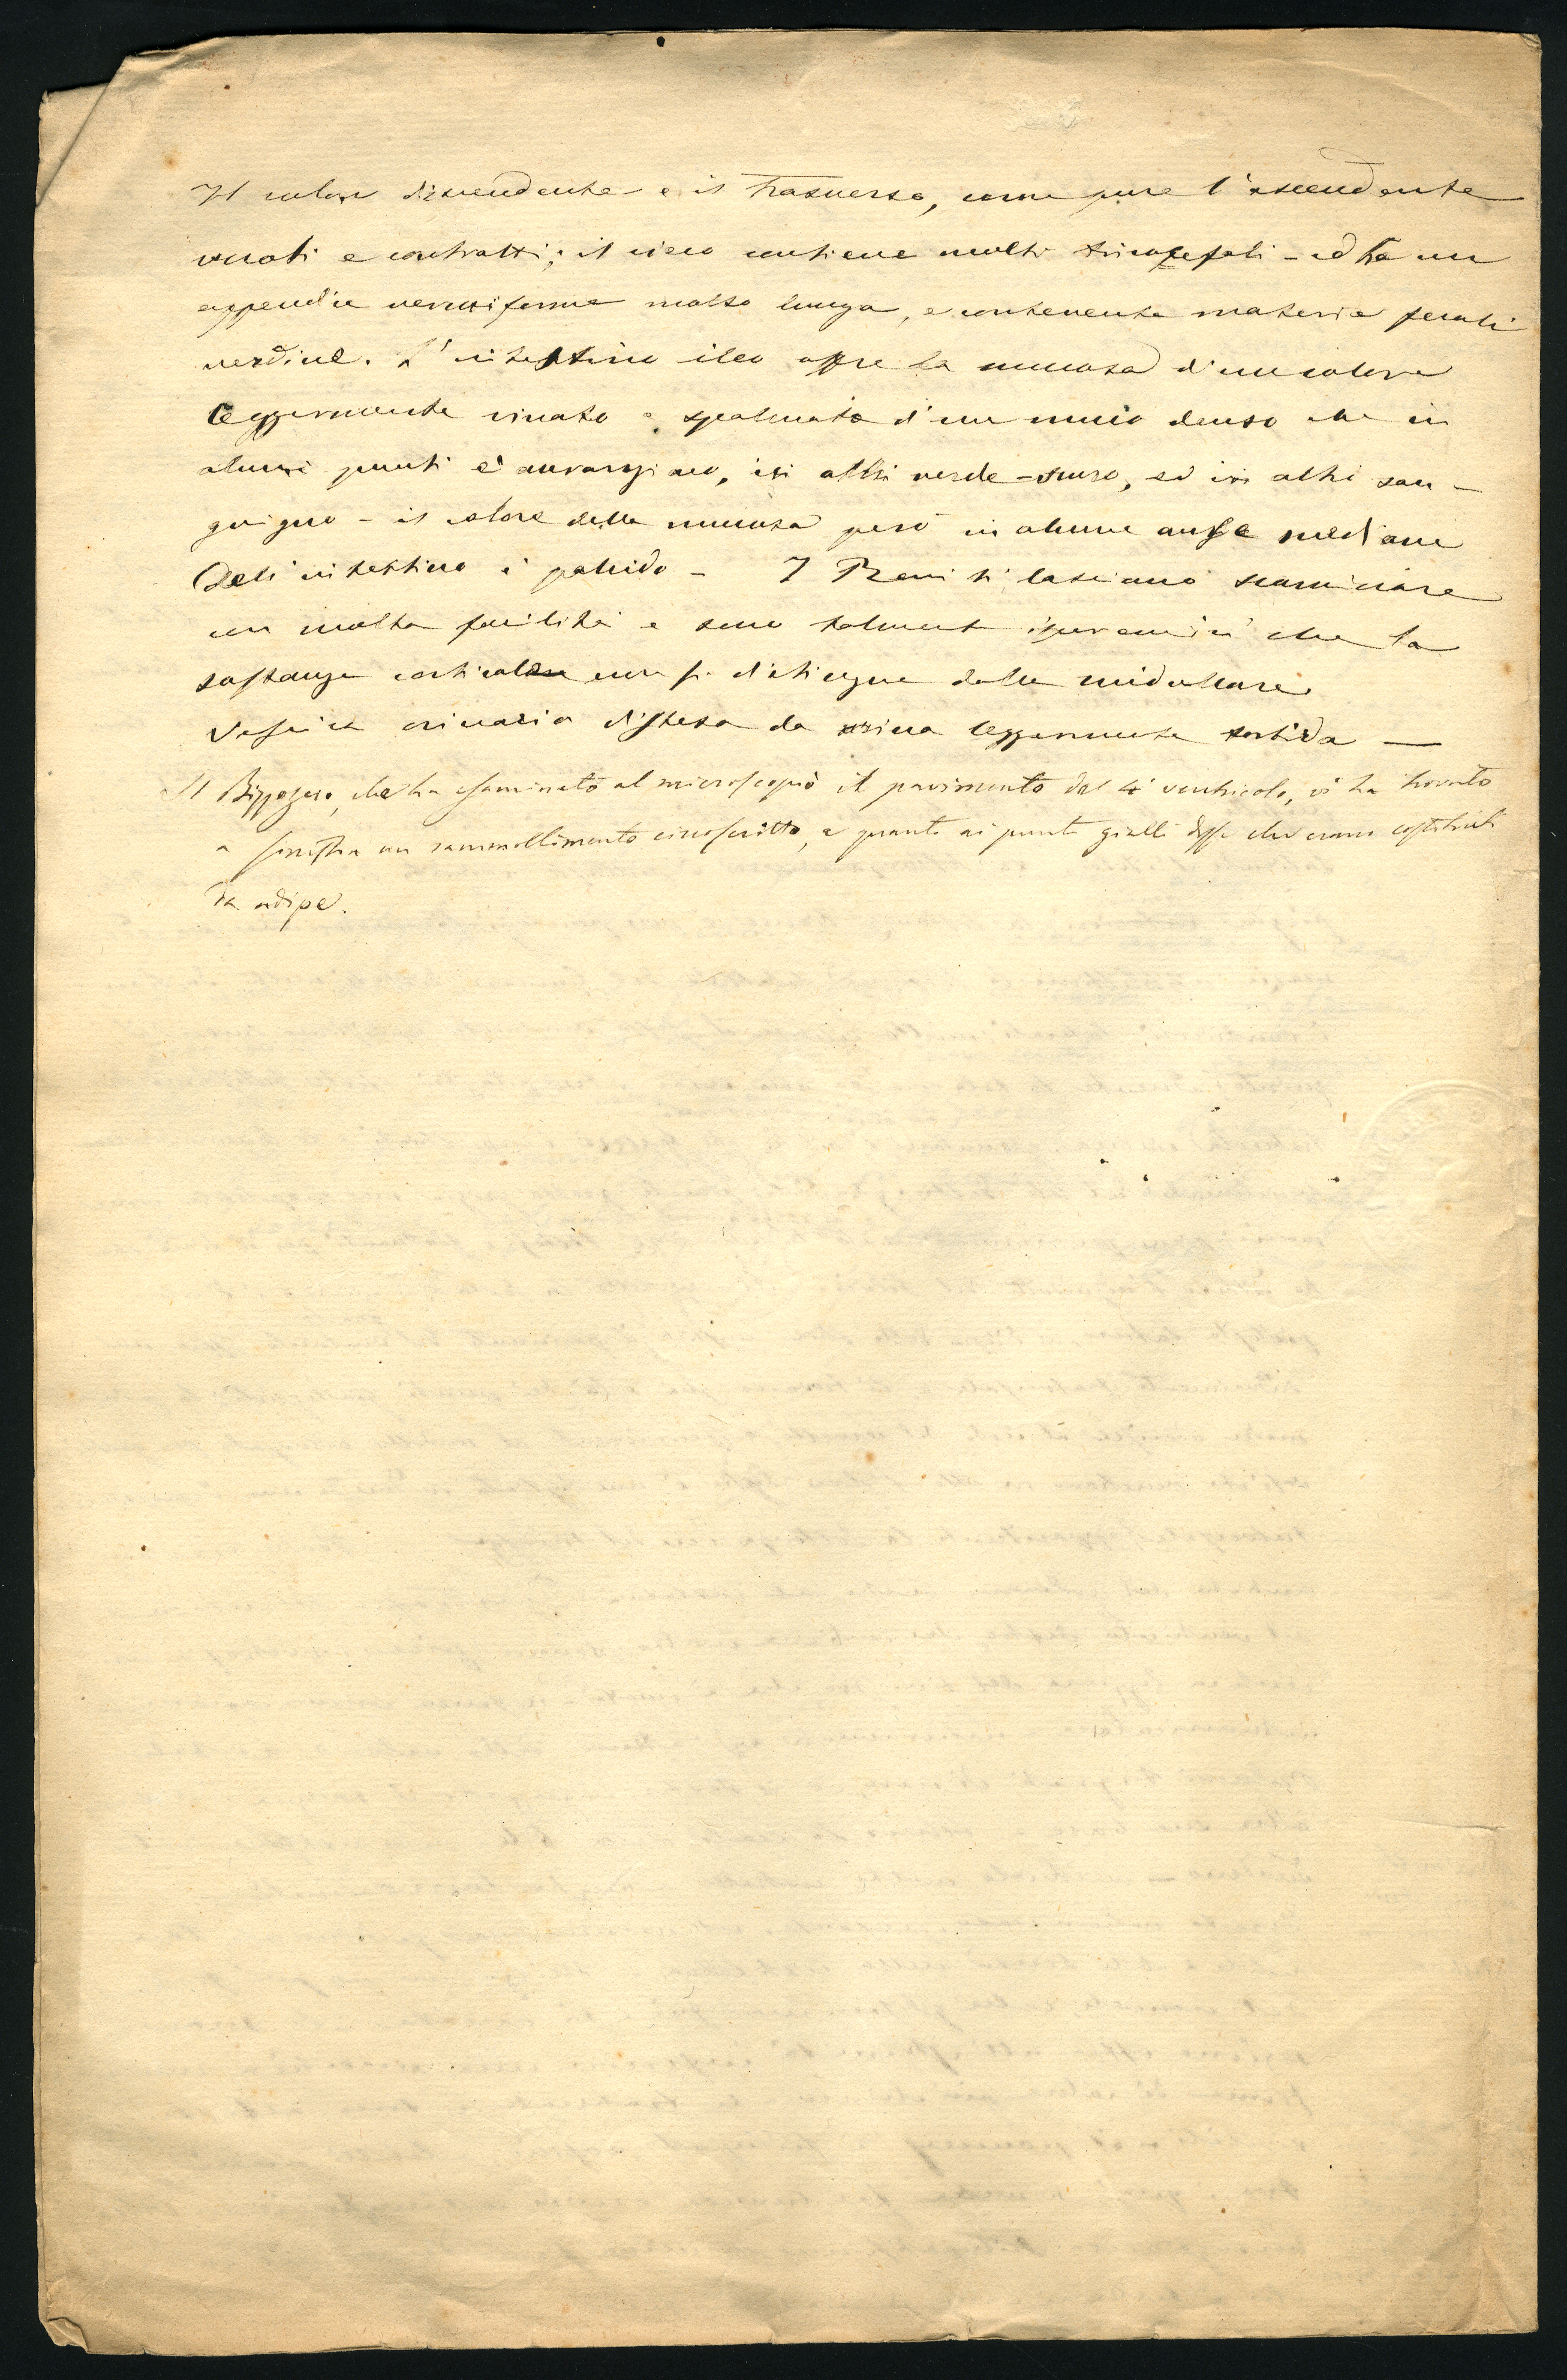 Il colon discendente e il trasverso, come pure l'ascendente
vuoti e contratti; il cieco contiene molti tricocefali - ed ha un
appendice vermiforme molto lunga, e contenente materie fecali
verdine. L'intestino ileo offre la mucosa d'un colore
leggermente vinato e spalmata d'un muco denso che in
alcuni punti è aranciaco, in altri verde-scuro, ed in altri san-
guigno - il colore della mucosa però in alcune anse mediane
dell'intestino è pallido - I Reni si lasciano scorticare
con molta facilità e sono talmente iperemici che la
sostanza corticale non si distingue dalla midollare.
Vescica orinaria distesa da orina leggermente torbida —
Il Bizzozero, che ha esaminato al microscopio il pavimento del 4° ventricolo, vi ha trovato
a sinistra un rammollimento circoscritto, e quanto ai punti gialli disse che erano costituiti
da adipe.